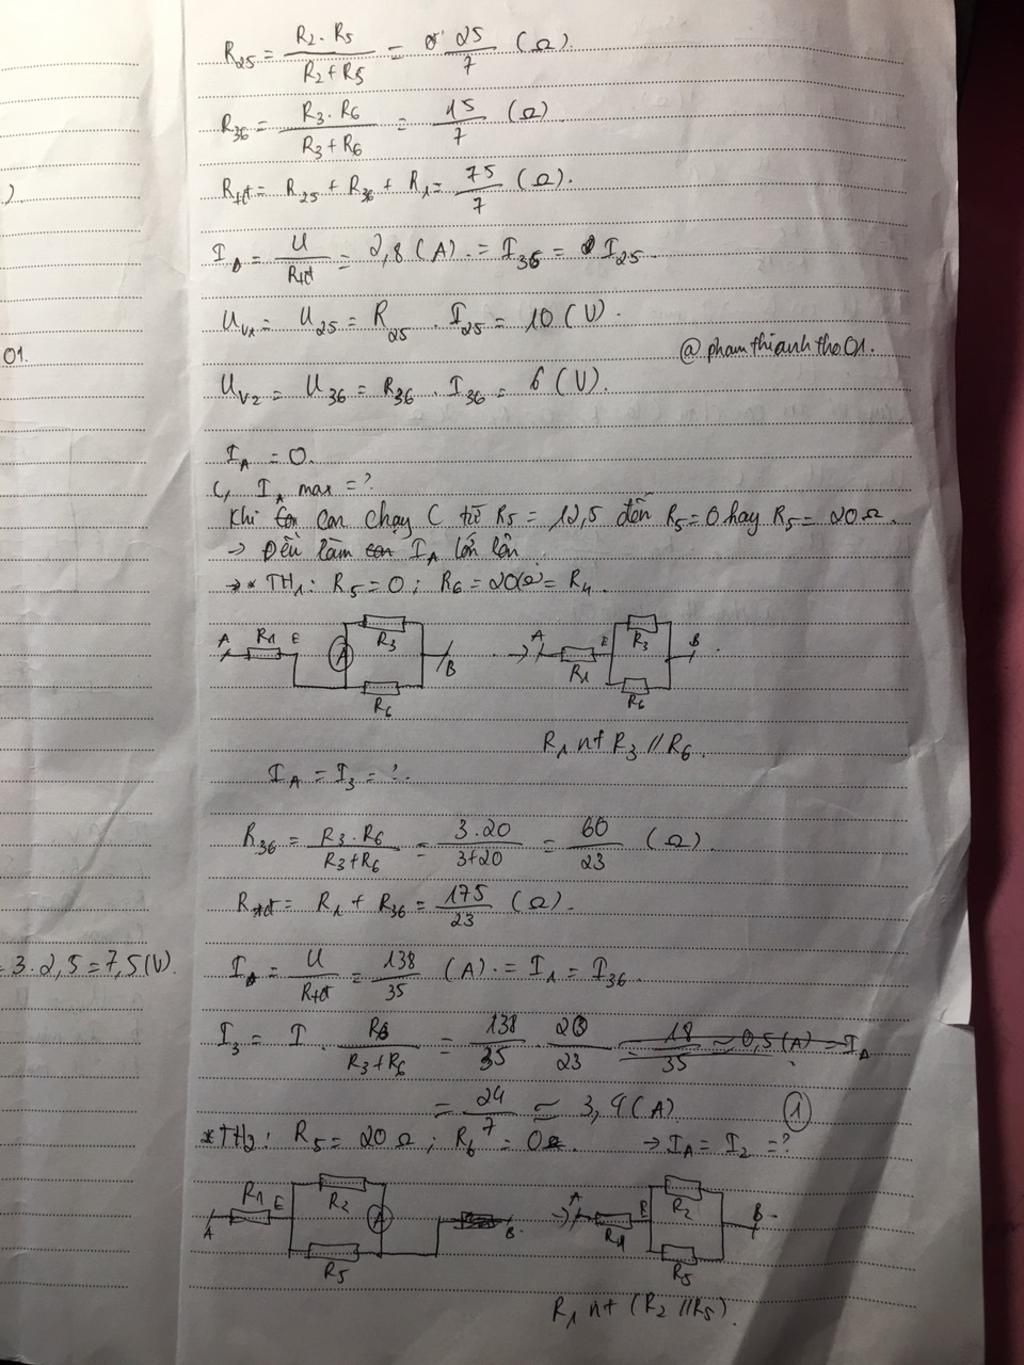 R25 = R2 . R5 / R2 + R5 = 25/7 (Ω).
R36 = R3 . R6 / R3 + R6 = 15/7 (Ω)
Rtđ = R25 + R36 + R1 = 75/7 (Ω).
).
I = U/Rtđ = 2,8 (A). = I36 = I25.
UV1 = U25 = R25 . I25 = 10 (V).
@phamthianhtho01.
01.
UV2 = U36 = R36 . I36 = 6 (V).
IA = 0.
C, IA max = ?
Khi con chạy C từ R5 = 12,5 đến R5 = 0 hay R5 = 20Ω.
→ Đều làm IA lớn lên
→ * TH1: R5 = 0 ; R6 = 20(Ω) = R4.
A R1 E A R3 B R6 → A R1 E R3 B R6
R1 nt R3 // R6.
IA = I3 = ?.
R36 = R3 . R6 / R3 + R6 = 3.20 / 3+20 = 60/23 (Ω).
Rtđ = R1 + R36 = 175/23 (Ω).
= 3.2,5 = 7,5 (V).
I = U/Rtđ = 138/35 (A). = I1 = I36.
I3 = I . R6 / R3 + R6 = 138/35 . 20/23 = 18/35 ≈ 0,5 (A) = IA
= 24/7 ≈ 3,4 (A) (1)
* TH2: R5 = 20Ω ; R6 = 0Ω. → IA = I2 = ?
A R1 E R2 A R5 B. → A R1 E R2 B R5
R1 nt (R2 // R5).